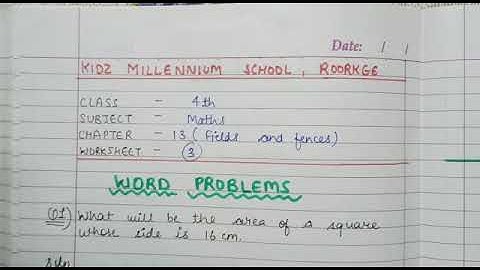 Date: / /
KIDZ MILLENNIUM SCHOOL, ROORKEE
CLASS - 4th
SUBJECT - Maths
CHAPTER - 13 (fields and fences)
WORKSHEET - 3
WORD PROBLEMS
Q1) What will be the area of a square
whose side is 16 cm.
Soln